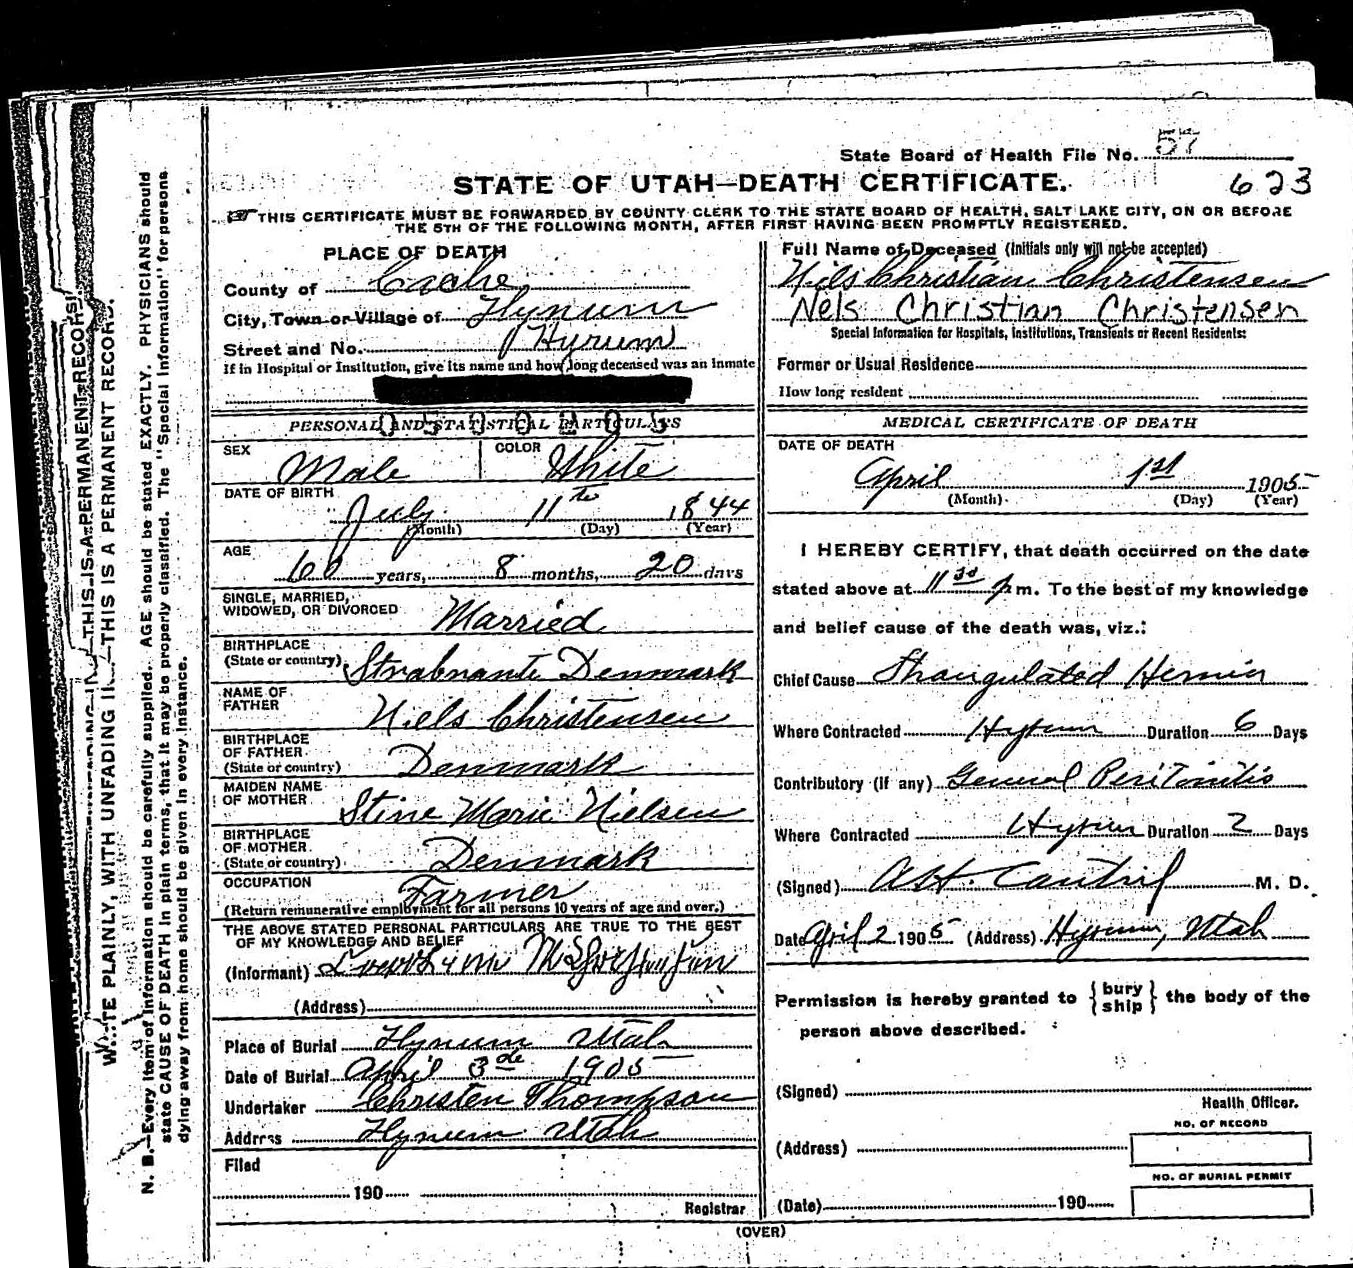 State Board of Health File No. 57
STATE OF UTAH—DEATH CERTIFICATE.
623
THIS CERTIFICATE MUST BE FORWARDED BY COUNTY CLERK TO THE STATE BOARD OF HEALTH, SALT LAKE CITY, ON OR BEFORE
THE 5TH OF THE FOLLOWING MONTH, AFTER FIRST HAVING BEEN PROMPTLY REGISTERED.
WRITE PLAINLY, WITH UNFADING INK—THIS IS A PERMANENT RECORD.
N. B.—Every item of information should be carefully supplied. AGE should be stated EXACTLY. PHYSICIANS should
state CAUSE OF DEATH in plain terms, that it may be properly classified. The "Special Information" for persons
dying away from home should be given in every instance.
PLACE OF DEATH
County of Cache
City, Town or Village of Hyrum
Street and No. Hyrum
If in Hospital or Institution, give its name and how long deceased was an inmate
PERSONAL AND STATISTICAL PARTICULARS
SEX Male
COLOR White
DATE OF BIRTH
July 11th 1844
(Month) (Day) (Year)
AGE
60 years, 8 months, 20 days
SINGLE, MARRIED,
WIDOWED, OR DIVORCED Married
BIRTHPLACE
(State or country) Denmark
NAME OF
FATHER Niels Christensen
BIRTHPLACE
OF FATHER
(State or country) Denmark
MAIDEN NAME
OF MOTHER Stine Marie Nielsen
BIRTHPLACE
OF MOTHER
(State or country) Denmark
OCCUPATION Farmer
(Return remunerative employment for all persons 10 years of age and over.)
THE ABOVE STATED PERSONAL PARTICULARS ARE TRUE TO THE BEST
OF MY KNOWLEDGE AND BELIEF
(Informant)
(Address)
Place of Burial Hyrum Utah
Date of Burial April 3rd 1905
Undertaker Christen Thompson
Address Hyrum Utah
Filed
190
Registrar
Full Name of Deceased (Initials only will not be accepted)
Niels Christian Christensen
Nels Christian Christensen
Special Information for Hospitals, Institutions, Transients or Recent Residents:
Former or Usual Residence
How long resident
MEDICAL CERTIFICATE OF DEATH
DATE OF DEATH
April 1st 1905
(Month) (Day) (Year)
I HEREBY CERTIFY, that death occurred on the date
stated above at 11 30 p m. To the best of my knowledge
and belief cause of the death was, viz.:
Chief Cause Strangulated Hernia
Where Contracted Hyrum Duration 6 Days
Contributory (if any) General Peritonitis
Where Contracted Hyrum Duration 2 Days
(Signed) M. D.
Date April 2 1905 (Address) Hyrum, Utah
Permission is hereby granted to { bury ship } the body of the
person above described.
(Signed)
Health Officer.
NO. OF RECORD
(Address)
NO. OF BURIAL PERMIT
(Date) 190
(OVER)